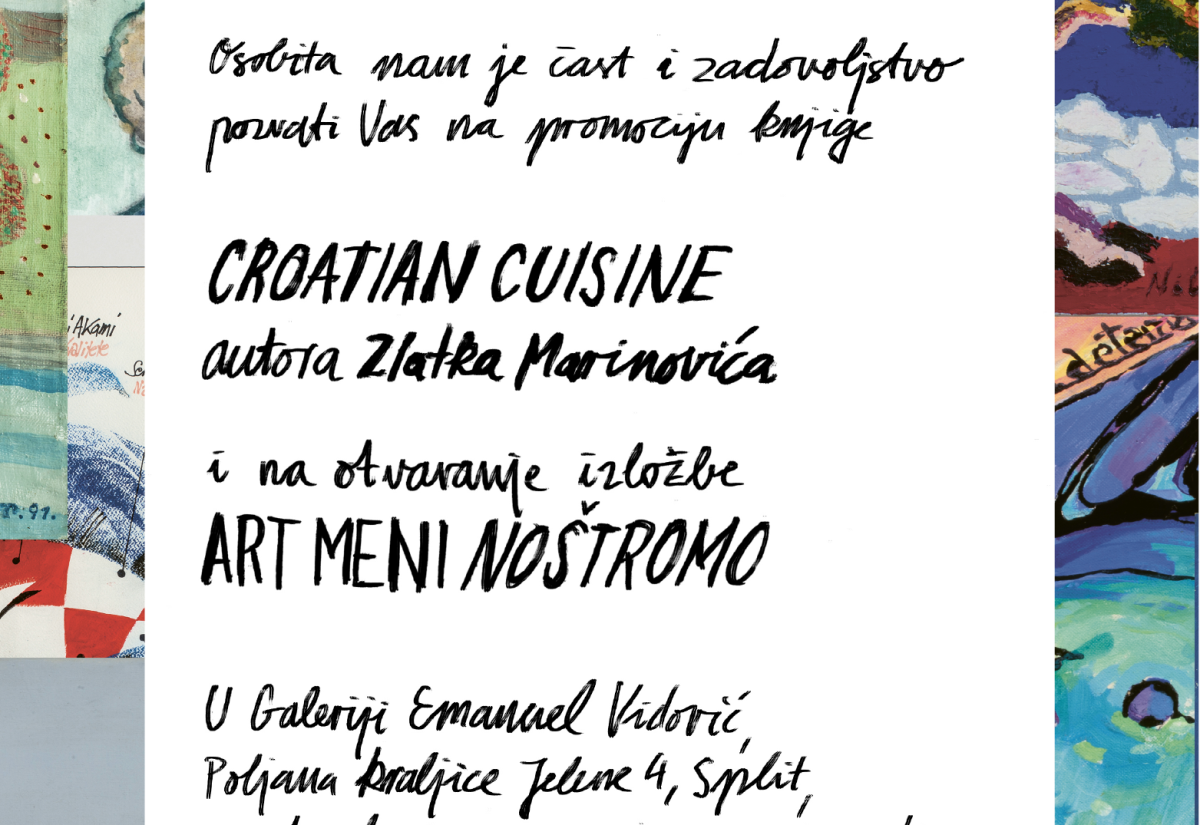 Osobita nam je čast i zadovoljstvo
pozvati Vas na promociju knjige
CROATIAN CUISINE
autora Zlatka Marinovića
i na otvaranje izložbe
ART MENI NOŠTROMO
U Galeriji Emanuel Vidović,
Poljana kraljice Jelene 4, Split,
i Akami